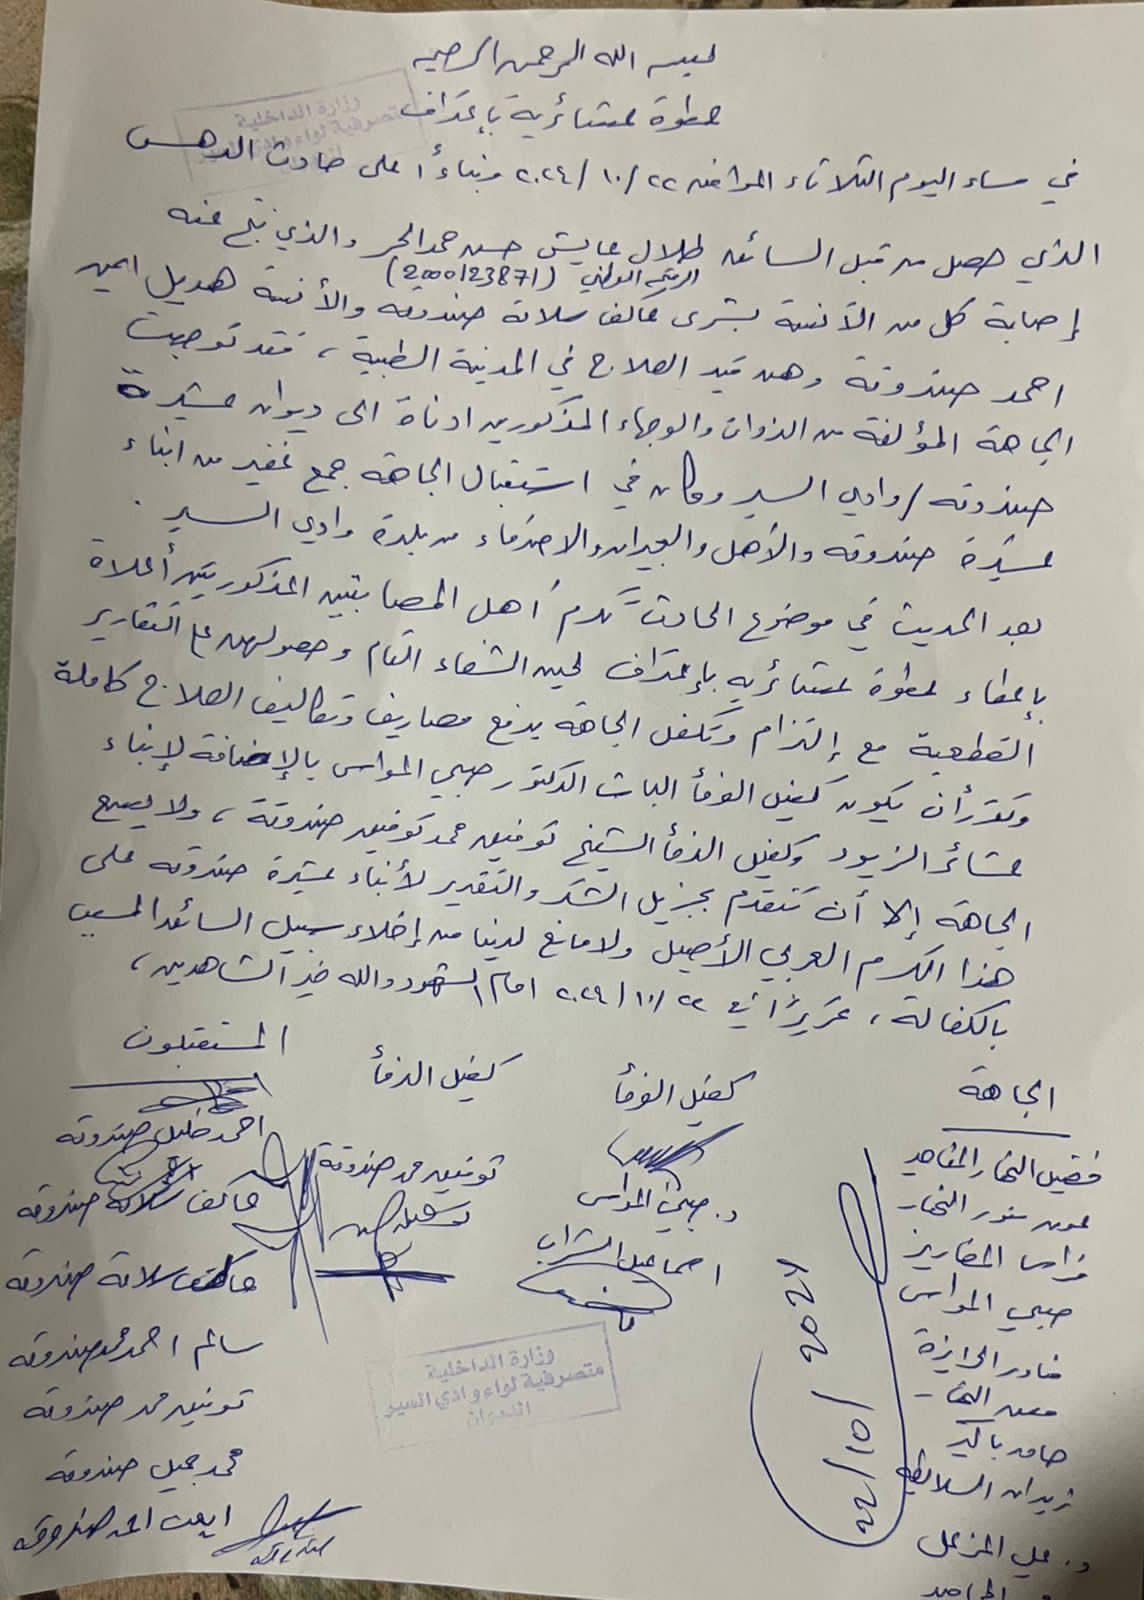 بسم الله الرحمن الرحيم
عطوة عشائرية بإعتراف
وزارة الداخلية
متصرفية لواء وادي السير
في مساء اليوم الثلاثاء الموافق ٢٢/١٠/٢٠٢٤ وبناءاً على حادث الدهس
الذي حصل من قبل السائق طلال عايش حسن حمد الحر والذي نتج عنه
الرقم الوطني (2000123871)
إصابة كل من الآنسة بشرى عاكف سلامة صندوقه والآنسة هديل ايمن
احمد صندوقة وهن قيد العلاج في المدينة الطبية ، فقد توجهت
الجاهة المؤلفة من الذوات والوجهاء المذكورين ادناة الى ديوان عشيرة
صندوقه / وادي السير وكان في استقبال الجاهة جمع غفير من ابناء
عشيرة صندوقه والأهل والجيران والاصدقاء من بلدة وادي السير .
بعد الحديث في موضوع الحادث تكرم أهل المصابتين المذكورتين أعلاة
بإعطاء عطوة عشائرية بإعتراف لحين الشفاء التام وحصولهن على التقارير
القطعية مع إلتزام وتكفل الجاهة بدفع مصاريف وتكاليف العلاج كاملة
وتقرر أن يكون كفيل الوفأ الباشا الدكتور صبحي المواس بالإضافة لإبناء
عشائر الزيود وكفيل الدفأ الشيخ توفيق محمد توفيق صندوقة ، ولا يسع
الجاهة إلا أن تتقدم بجزيل الشكر والتقدير لأبناء عشيرة صندوقه على
هذا الكرم العربي الأصيل ولا مانع لدينا من إخلاء سبيل السائق المسبب
بالكفالة ، تحريراً في ٢٢/١٠/٢٠٢٤ امام الشهود والله خير الشاهدين ،
الجاهة
كفيل الوفأ
كفيل الدفأ
المستقبلون
د. صبحي المواس
اسماعيل
توفيق محمد صندوقة
احمد خليل صندوقه
عاكف سلامة صندوقه
عاكف سلامة صندوقه
سالم احمد محمد صندوقه
توفيق محمد صندوقة
محمد جميل صندوقه
ايمن احمد صندوقه
صبحي المواس
د. علي
22/10/2024
وزارة الداخلية
متصرفية لواء وادي السير
الديوان